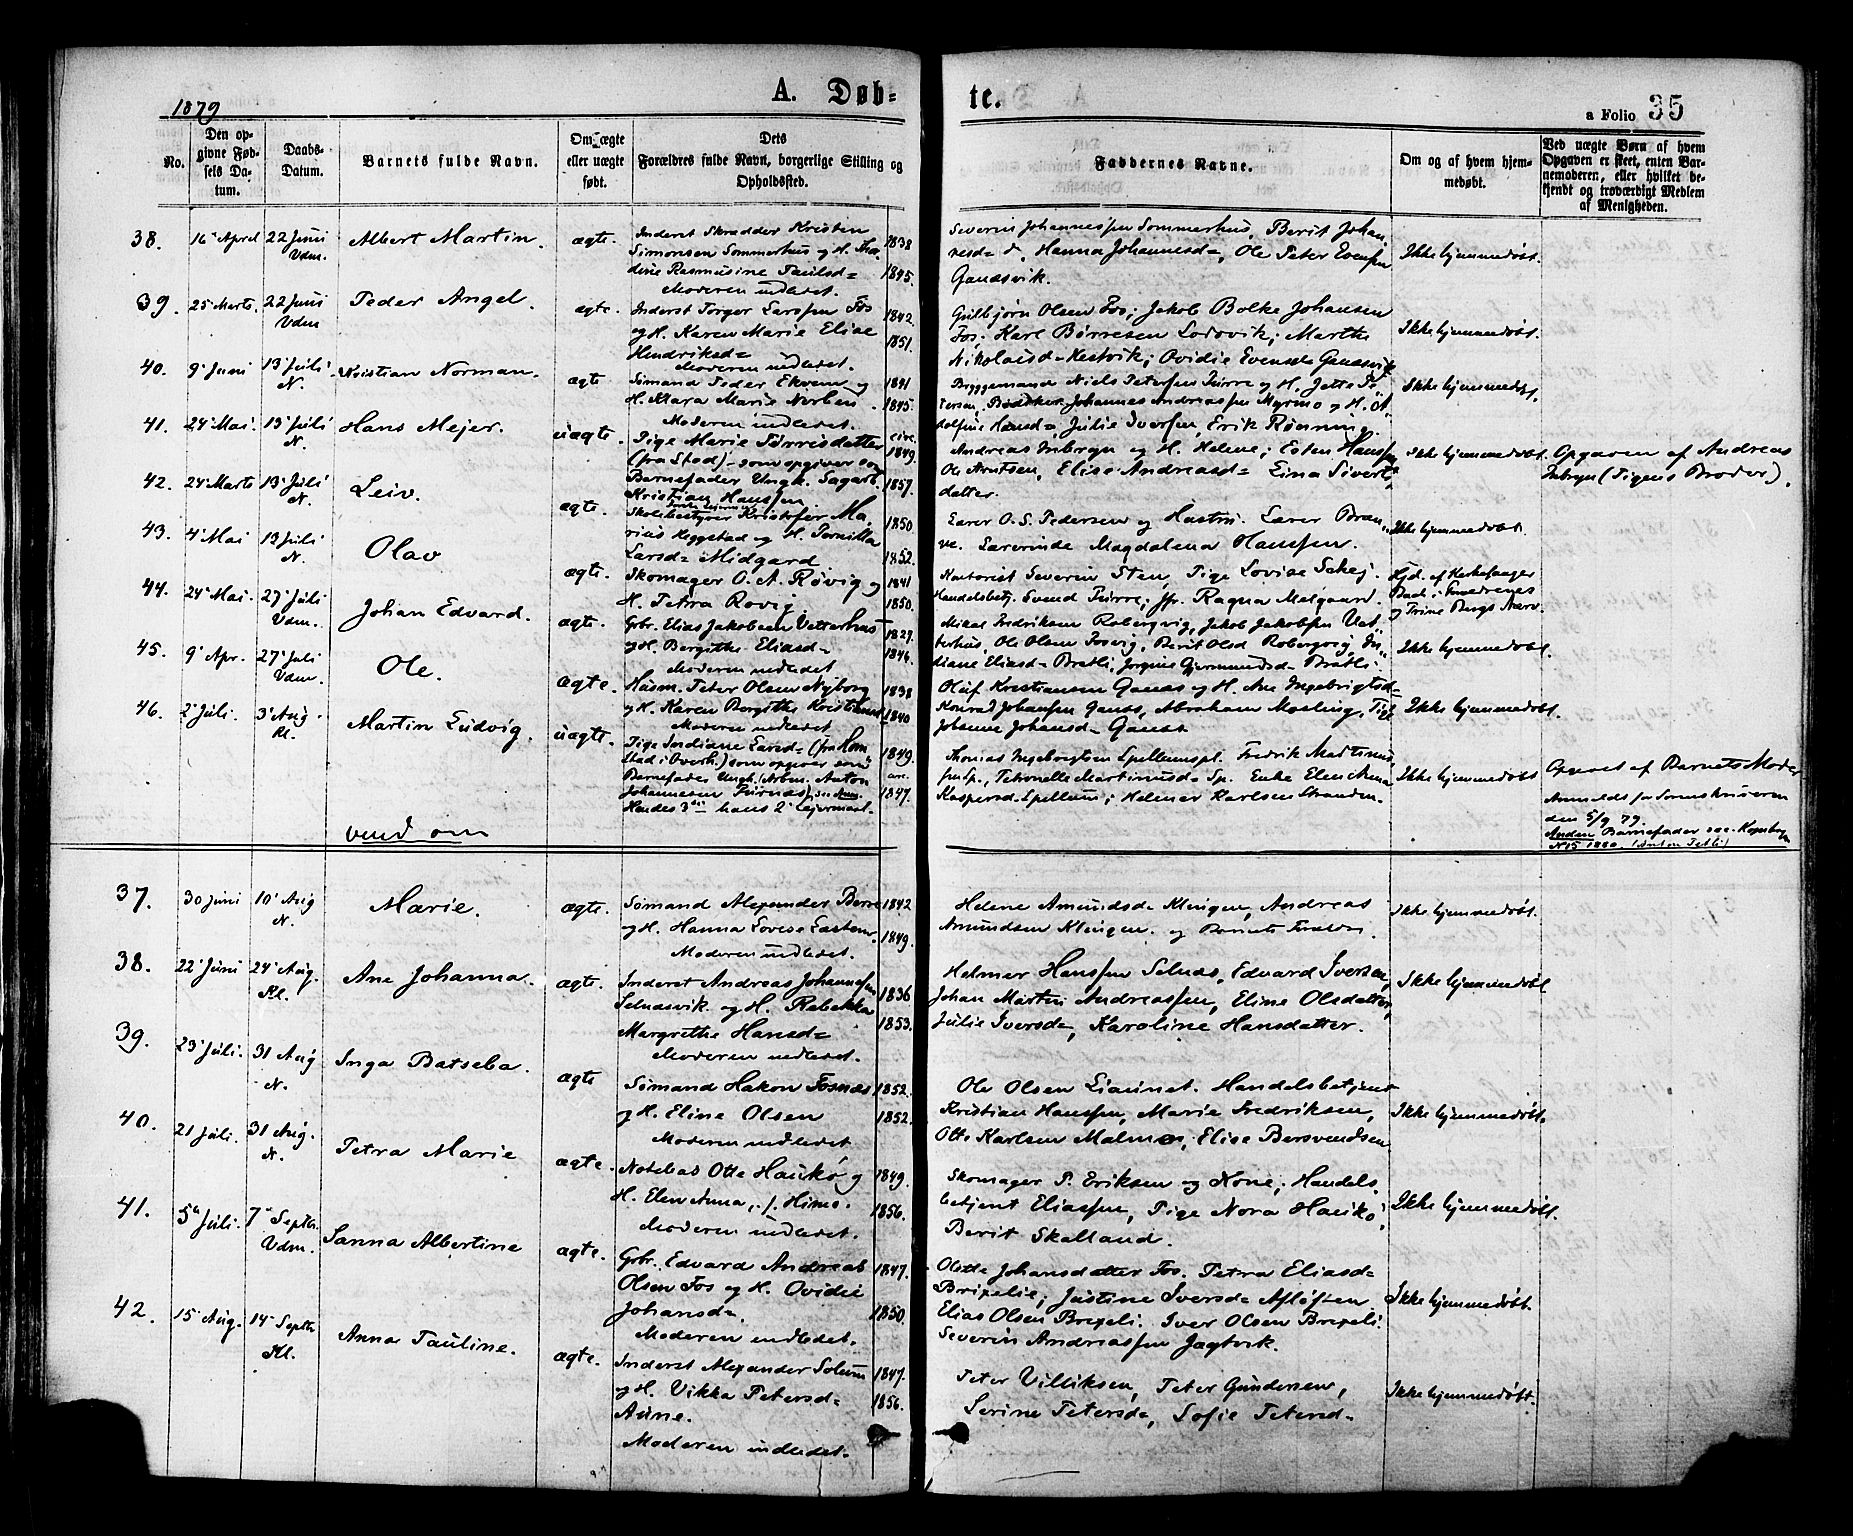 1879
A. Døb-
te.
a Folio 35
No.
Den op-
givne Fød-
sels Da-
tum.
Daabs-
Datum.
Barnets fulde Navn.
Om ægte
eller uægte
født.
Dets
Forældres fulde Navn, borgerlige Stilling og
Opholdssted.
Faddernes Navne.
Om og af hvem hjem-
medøbt.
Ved uægte Børn af hvem
Opgaven er skeet, enten Bar-
nemoderen, eller hvilket be-
kjendt og troværdigt Medlem
af Menigheden.
38. 16 April 22 Juni Vdm. Albert Martin. ægte.
Inderst Skrædder Kristen 1838
Simonsen Sommerhus og H. Tho-
dine Rasmusine Paulsd= 1845.
Moderen indledet.
Severin Johannessen Sommerhus, Berit Johan-
nesd= d, Hanna Johannesd=, Ole Peter Evensen
Ganæsvik.
Ikke hjemmedøbt.
39. 25 Marts. 22 Juni Vdm Peder Angel. ægte.
Inderst Torger Larssen Fos 1842.
og H. Karen Marie Elise 1851.
Hendriksd=
Moderen indledet.
Gulbjørn Olsen Fos; Jakob Bolke Johansen
Fos; Karl Børresen Lodovik; Marthe
Nikolaisd= Kestvik; Ovidie Evensd= Ganæsvik
Ikke hjemmedøbt.
40. 9 Juni 13 Juli N. Kristian Norman. ægte
Sømand Peder Ekvem og 1841
H. Klara Marie Norben. 1845.
Moderen indledet.
Bryggemand Niels Petersen Furre og H. Jette Pe-
tersen, Bødker Johannes Andreassen Myrmo og H. A-
dolfine Hansd=, Julie Iversen, Erik Rønning.
Ikke hjemmedøbt.
41. 24 Mai. 13 Juli N. Hans Mejer. uægte.
Pige Marie Tørrisdatter circ. 1849.
(fra Stod) - som opgiver som
Barnefader Ungk. Sagarb. 1857.
Kristian Hanssen
Andreas Inbryn og H. Helene; Esten Hanssen
Ole Arntsen, Elise Andreasd= Lina Sivert-
datter.
Ikke hjemmedøbt.
Opgaven af Andreas
Inbryn (Pigens Broder).
42. 24 Marts 13 Juli N. Leiv. ægte.
Skolebestyrer Kristofer Ma- 1850
rius Heggstad og H. Pernilla
Larsd= Midgard 1852.
Lærer O. S. Pedersen og Hustru. Lærer Brau-
ve. Lærerinde Magdalena Hanssen.
Ikke hjemmedøbt.
43. 4 Mai 13 Juli N. Olav ægte.
Skomager O. A. Røvig og 1841
H. Petra Rovig. 1850.
Kontorist Severin Sten, Pige Lovise Schej.
Handelsbetj. Svend Furre; Jfr. Ragna Melgaard.
Hjd. af Kirkesanger
Bach i Smedrenes
og Trine Bergs Nærv.
44. 24 Mai. 27 Juli Vdm. Johan Edvard. ægte.
Gbr. Elias Jakobsen Vetterhus 1829.
og H. Bergithe Eliasd= 1846.
Moderen indledet
Mikal Fredriksen Robergvig, Jakob Jakobsen Vet-
terhus, Ole Olsen Fosvig, Berit Olsd Robergvig, In-
diane Eliasd= Bratli, Jorgine Gjermundsd= Bratli.
Ikke hjemmedøbt.
45. 9 Apr. 27 Juli Vdm. Ole. ægte.
Husm. Peter Olsen Nyborg 1838
og H. Karen Bergithe Kristiansd= 1840
Moderen indledet
Oluf Kristiansen Ganæs og H. Ane Ingebrigtsd=
Konrad Johansen Ganæs, Abraham Mosling, Pige
Johanne Johansd= Ganæs.
Ikke hjemmedøbt.
46. 2 Juli. 3 Aug. Kl. Martin Ludvig. uægte.
Pige Indiane Larsd= (fra Hom- 1849.
stad i Overh.) som opgiver som
Barnefader Ungk. Arbm. Anton 1847.
Johannesen Furnes,
Hendes 3die hans 2 Lejermaal.
Thomas Ingebrigtsen Spellumspl. Fredrik Martinus-
sen Sp., Petronelle Martinusd= Sp. Enke Elen Anna
Kaspersd= Spellum; Helmer Karlsen Stranden.
Ikke hjemmedøbt
Opgivet af Barnets Moder
Anmeldt for Sorenskriveren
den 5/9 79.
Anden Barnefader
N 15 1880.
vend om
37. 30 Juni 10 Aug N. Marie. ægte.
Sømand Alexander Berre 1842
og H. Hanna Lovise Lastem. 1849.
Moderen indledet.
Helene Amundsd= Klingen, Andreas
Amundsen Klingen. og Barnets Forældre.
Ikke hjemmedøbt.
38. 22 Juni 24 Aug. Kl. Ane Johanna. ægte.
Inderst Andreas Johannesen 1836
Selnæsvik og H. Rebekka 1853.
Margrethe Hansd=
Moderen indledet.
Helmer Hanssen Selnæs, Edvard Iversen,
Johan Martin Andreassen, Eline Olsdatter,
Julie Iversd=, Karoline Hansdatter.
Ikke hjemmedøbt
39. 23 Juli. 31 Aug N. Inga Batseba. ægte
Sømand Hakon Fosnæs 1852.
og H. Eline Olsen 1852.
Moderen indledet
Ole Olsen Liaunet. Handelsbetjent
Kristian Hanssen, Marie Fredriksen,
Otto Karlsen Malmo, Elise Bersvendsen
Ikke hjemmedøbt.
40. 21 Juli. 31 Aug. N. Petra Marie ægte.
Notebas Otte Haukø og 1849.
H. Elen Anna, f. Himo. 1856.
Moderen indledet.
Skomager P. Eriksen og Kone; Handels-
betjent Eliassen, Pige Nora Haukø,
Berit Skalland.
Ikke hjemmedøbt.
41. 5 Juli. 7 Septbr. Vdm. Sanna Albertine ægte.
Gbr. Edvard Andreas 1847.
Olsen Fos og H. Ovidie
Johansd=. 1850.
Moderen indledet.
Olette Johansdatter Fos. Petra Eliasd=
Brexelie; Justine Iversd= Afløften.
Elias Olsen Brexeli. Iver Olsen Brexeli.
Severin Andreassen Jagtvik.
Ikke hjemmedøbt.
42. 15 Aug. 14 Septbr Kl. Anna Pauline. ægte.
Inderst Alexander Solum 1847.
og H. Vikka Petersd= 1856.
Aune.
Moderen indledet.
Peter Villiksen, Peter Gundersen,
Serine Petersd=, Sofie Petersd=
Ikke hjemmedøbt.